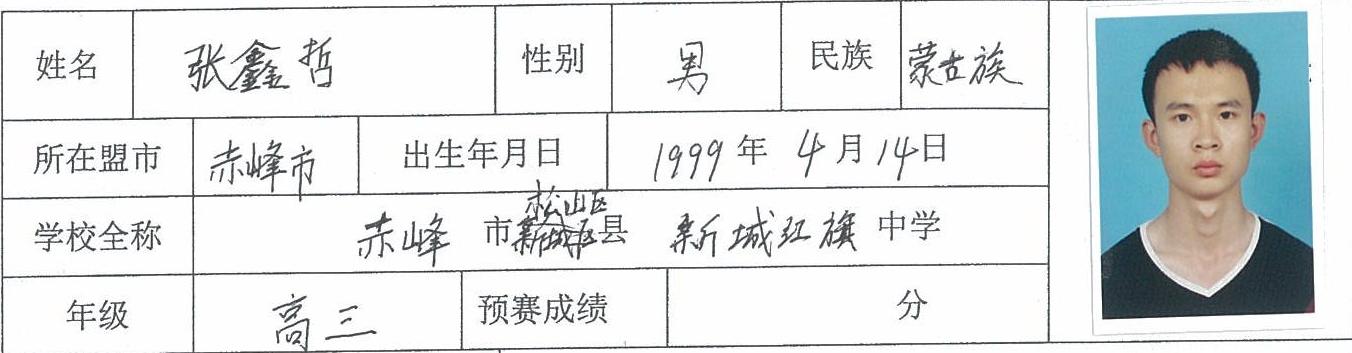 姓名 张鑫哲 性别 男 民族 蒙古族
所在盟市 赤峰市 出生年月日 1999年 4月14日
松山区
学校全称 赤峰 市 县 新城红旗 中学
年级 高三 预赛成绩 分